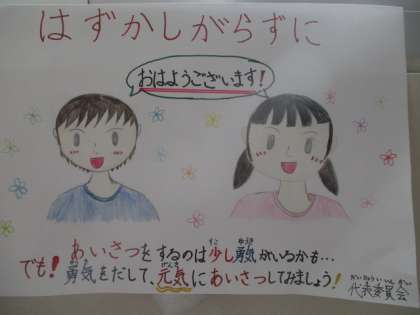 はずかしがらずに
おはようございます!
あいさつをするのは少し勇気がいるかも…
でも!勇気をだして、元気にあいさつしてみましょう!
代表委員会